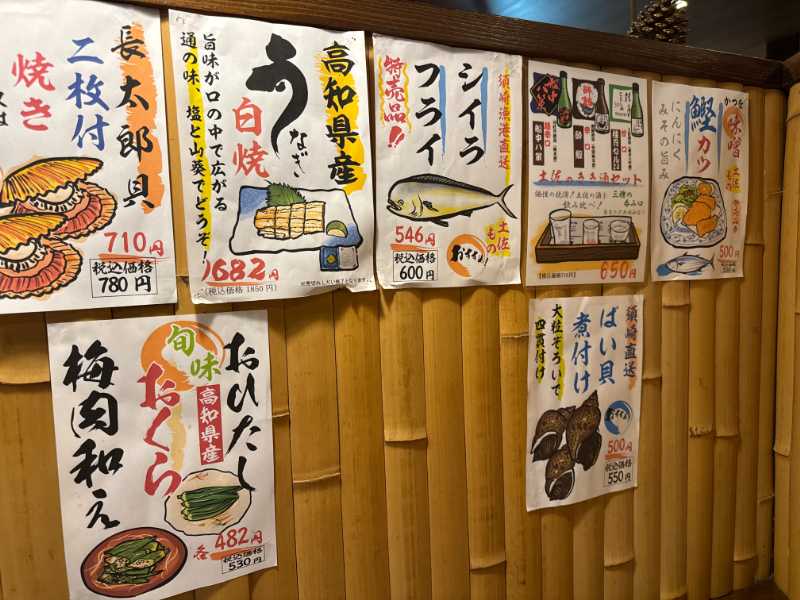 長太郎貝
二枚付
焼き
710円
税込価格
780円
高知県産
うなぎ
白焼
旨味が口の中で広がる
通の味、塩と山葵でどうぞ!
1682円
(税込価格 1850円)
須崎漁港直送
シイラ
フライ
特売品!!
土佐もの
546円
税込価格
600円
土佐のきき酒セット
船中八策
飲み比べ!
三種の
呑み切り
650円
かつお
鰹カツ
味噌
にんにく
みその旨み
500円
税込価格550円
おひたし
旬味
高知県産
おくら
梅肉和え
各482円
税込価格
530円
須崎直送
ばい貝
煮付け
大粒ぞろいで
四貫付け
500円
税込価格
550円